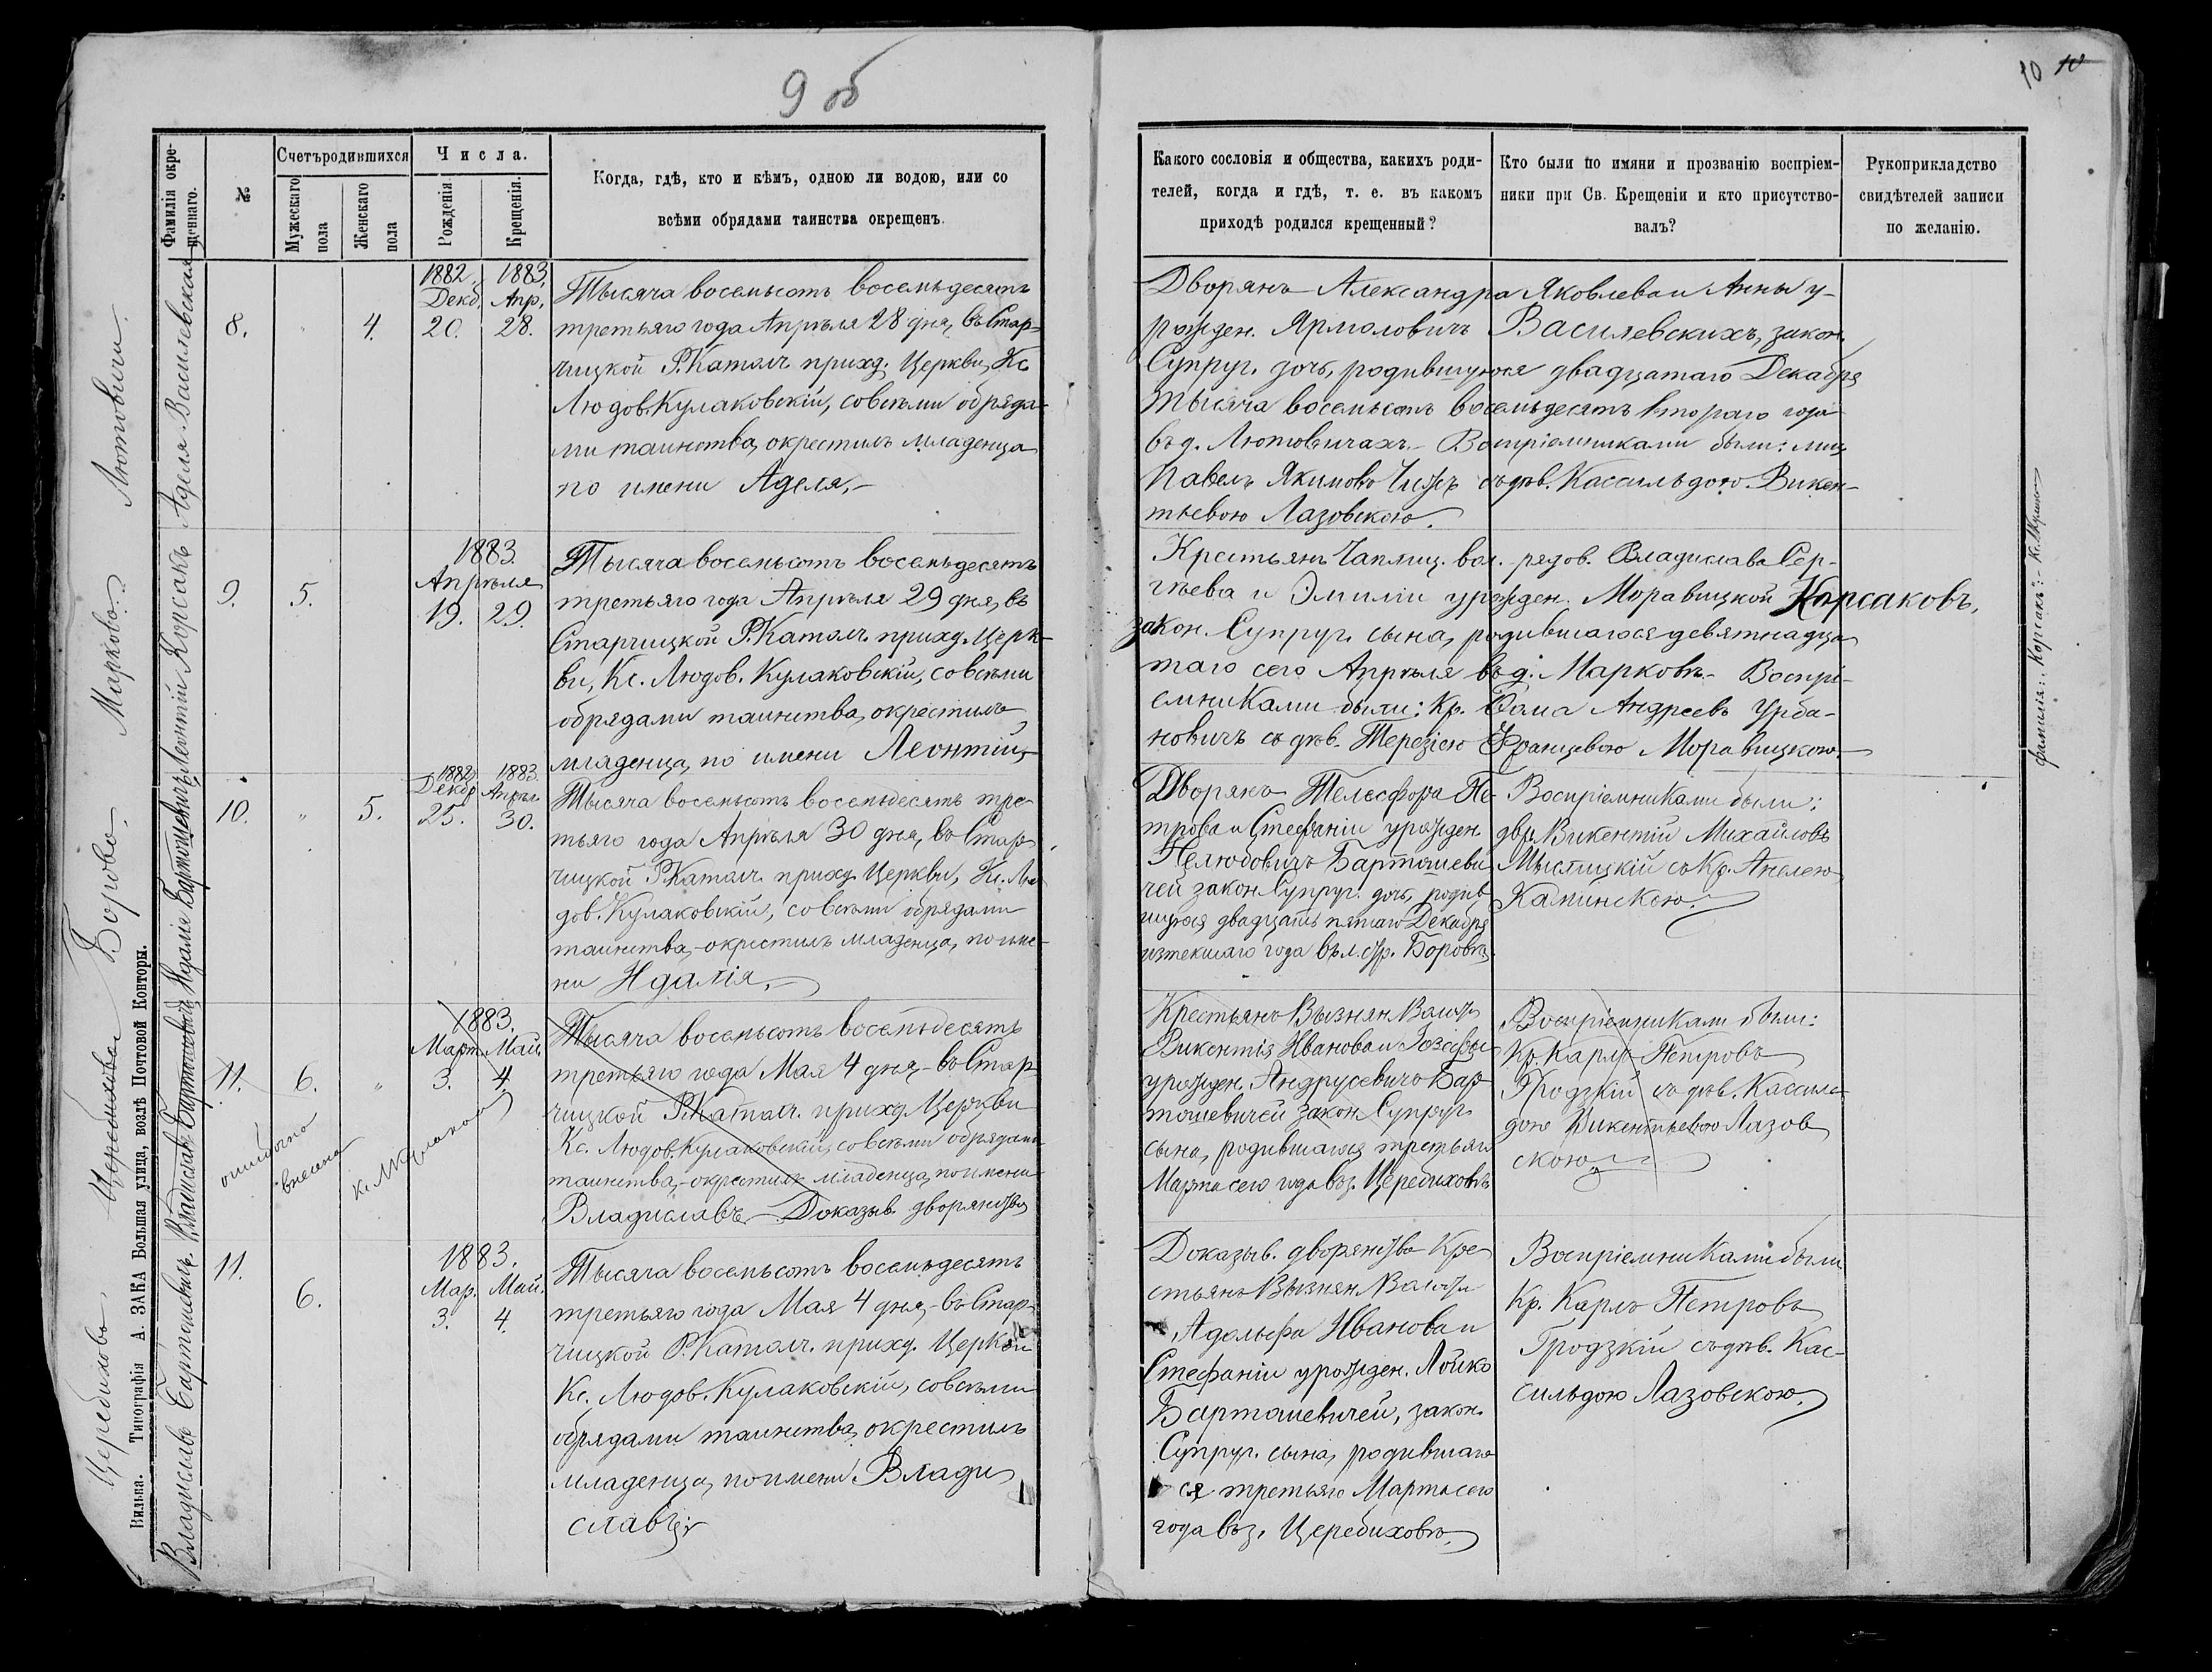 9 об
Фамилія окре-
щеннаго.
№
Счетъ родившихся
Мужескаго
пола
Женскаго
пола
Числа.
Рожденія.
Крещенія.
Когда, гдѣ, кто и кѣмъ, одною ли водою, или со
всѣми обрядами таинства окрещенъ.
Лютовичи.
Аделя Василевская
8.
"
4.
1882.
Декб.
20.
1883.
Апр.
28.
Тысяча восемьсотъ восемьдесятъ
третьяго года Апрѣля 28 дня, въ Стар-
чицкой Р. Катол. приход. Церкви, Кс.
Людов. Кулаковскій, совсѣми обряда-
ми таинства, окрестилъ младенца
по имени Аделя.—
Марково.
Леонтій Корсакъ
9.
5.
1883.
Апрѣля
19. 29.
Тысяча восемьсотъ восемьдесятъ
третьяго года Апрѣля 29 дня, въ
Старчицкой Р. Катол. приход. Церк-
ви, Кс. Людов. Кулаковскій, совсѣми
обрядами таинства, окрестилъ
младенца, по имени Леонтій,—
Борово.
Идалія Бартошевичъ
10.
"
5.
1882.
Декбр
25.
1883.
Апрѣл.
30.
Тысяча восемьсотъ восемьдесятъ тре-
тьяго года Апрѣля 30 дня, въ Стар-
чицкой Р. Катол. приход. Церкви, Кс. Лю-
дов. Кулаковскій, совсѣми обрядами
таинства, окрестилъ младенца, по име-
ни Идалія.—
Церебихово
Владиславъ
11.
6.
"
1883.
Март. Май.
3. 4.
ошибочно
внесена
Тысяча восемьсотъ восемьдесятъ
третьяго года Мая 4 дня,- въ Стар-
чицкой Р. Катол. приход. Церкви
Кс. Людов. Кулаковскій, совсѣми обрядами
таинства,-окрестилъ младенца, по имени
Владиславъ.— Доказыв. дворянство
Церебихово.
Владиславъ Бартошевичъ
11.
6.
1883.
Мар. Май.
3. 4.
Тысяча восемьсотъ восемьдесятъ
третьяго года Мая 4 дня,- въ Стар-
чицкой Р. Катол. приход. Церкви
Кс. Людов. Кулаковскій, совсѣми
обрядами таинства, окрестилъ
младенца, по имени Влади
славъ.
Вильна. Типографія А. ЗАКА Большая улица, возлѣ Почтовой Конторы.
10 10
Какого сословія и общества, какихъ роди-
телей, когда и гдѣ, т. е. въ какомъ
приходѣ родился крещенный?
Кто были по имяни и прозванію воспріем-
ники при Св. Крещеніи и кто присутство-
валъ?
Рукоприкладство
свидѣтелей записи
по желанію.
Дворянъ Александра Яковлева и Анны у-
рожден. Ярмоловичъ Василевскихъ, закон.
Супруг. дочь, родившуюся двадцатаго Декабря
тысяча восемьсотъ восемьдесятъ втораго года
въ д. Лютовичахъ.— Воспріемниками были: мѣщ.
Павелъ Якимовъ Чижъ съ дѣв. Кассильдою Викен-
тьевою Лазовскою.
Крестьянъ Чаплиц. вол. рядов. Владислава Сер-
гѣева и Эмиліи урожден. Моравицкой Корсаковъ,
закон. Супруг. сына, родившагося девятнадца
таго сего Апрѣля въ д. Марковѣ.— Воспрі-
емниками были: Кр. Ѳома Андреевъ Урба-
новичъ съ дѣв. Терезіею Францевою Моравицкою.—
Дворянъ Телесфора Пе-
трова и Стефаніи урожден.
Нелюбовичъ Бартошеви-
чей закон. Супруг. дочь, родив-
шуюся двадцать пятаго Декабря
истекшаго года въ Боровѣ.
Воспріемниками были:
двр. Викентій Михайловъ
Мыслицкій съ Кр. Анелею
Каминскою.
Крестьянъ Вызнян. Волости
Викентія Иванова и Іозефы
урожден. Андрусевичъ Бар-
тошевичей закон. Супруг.
сына, родившагося третьяго
Марта сего года въ з. Церебиховѣ
Воспріемниками были:
Кр. Карлъ Петровъ
Гродзкій съ дѣв. Кассиль-
дою Викентьевою Лазов
скою.
Доказыв. дворянство Кре-
стьянъ Вызнян. Волости
Адольфа Иванова и
Стефаніи урожден. Лойко
Бартошевичей, закон.
Супруг. сына, родившаго
ся третьяго Марта сего
года въ з. Церебиховѣ.
Воспріемниками были
Кр. Карлъ Петровъ
Гродзкій съ дѣв. Кас-
сильдою Лазовскою.
фамилія: "Корсакъ":-